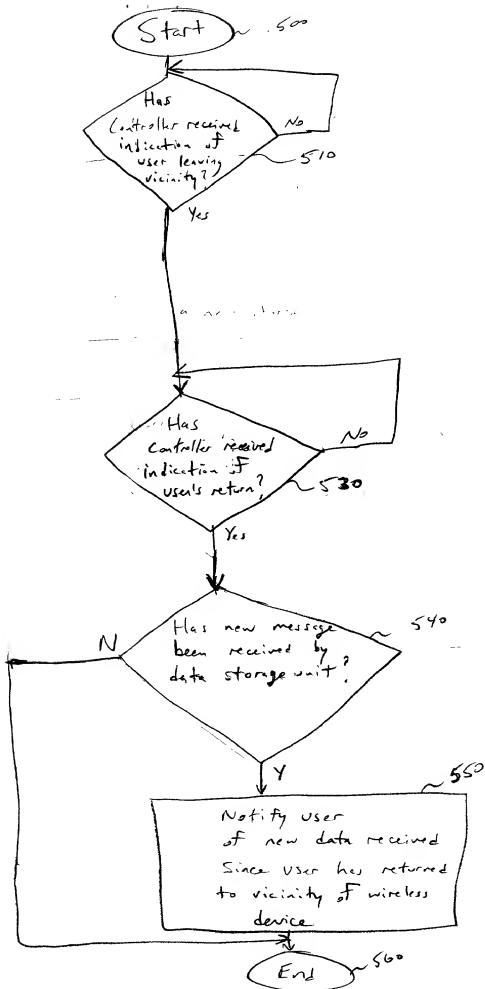 Start
500
Has
Controller received
indication of
user leaving
vicinity?
No
510
Yes
Has
Controller received
indication of
user's return?
No
530
Yes
Has new message
been received by
data storage unit?
540
N
Y
550
Notify user
of new data received
Since user has returned
to vicinity of wireless
device
End
560